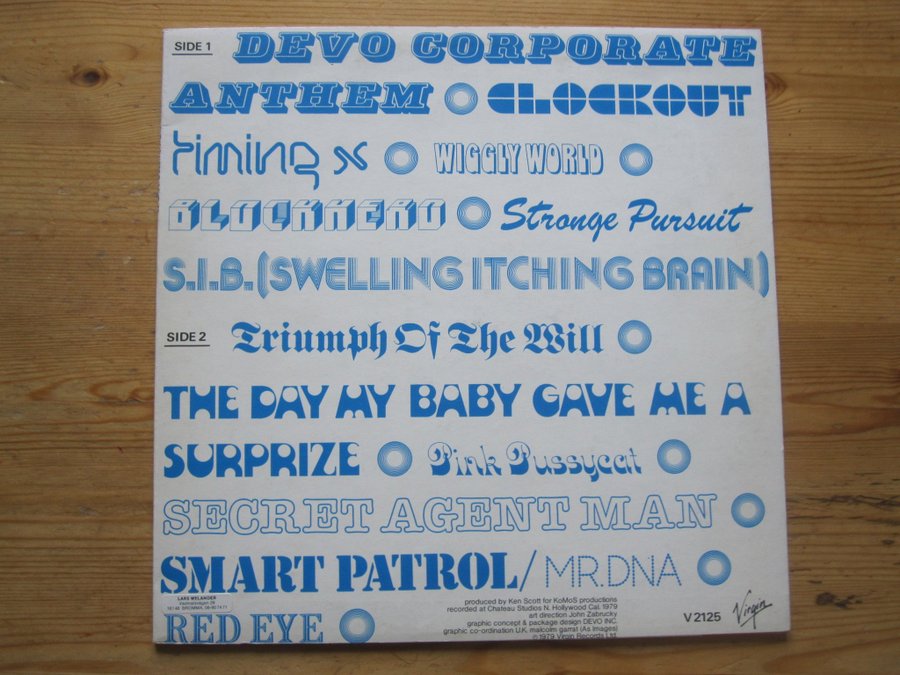 SIDE 1 DEVO CORPORATE
ANTHEM CLOCKOUT
Timing X WIGGLY WORLD
BLOCKHEAD Strange Pursuit
S.I.B. (SWELLING ITCHING BRAIN)
SIDE 2 Triumph Of The Will
THE DAY MY BABY GAVE ME A
SURPRIZE Pink Pussycat
SECRET AGENT MAN
SMART PATROL/MR.DNA
LARS MELANDER
RED EYE
produced by Ken Scott for KoMoS productions
recorded at Chateau Studios N. Hollywood Cal. 1979
art direction John Zabrucky
graphic concept & package design DEVO INC.
graphic co-ordination U.K. malcolm garrat (As Images)
© 1979 Virgin Records Ltd.
V 2125 Virgin